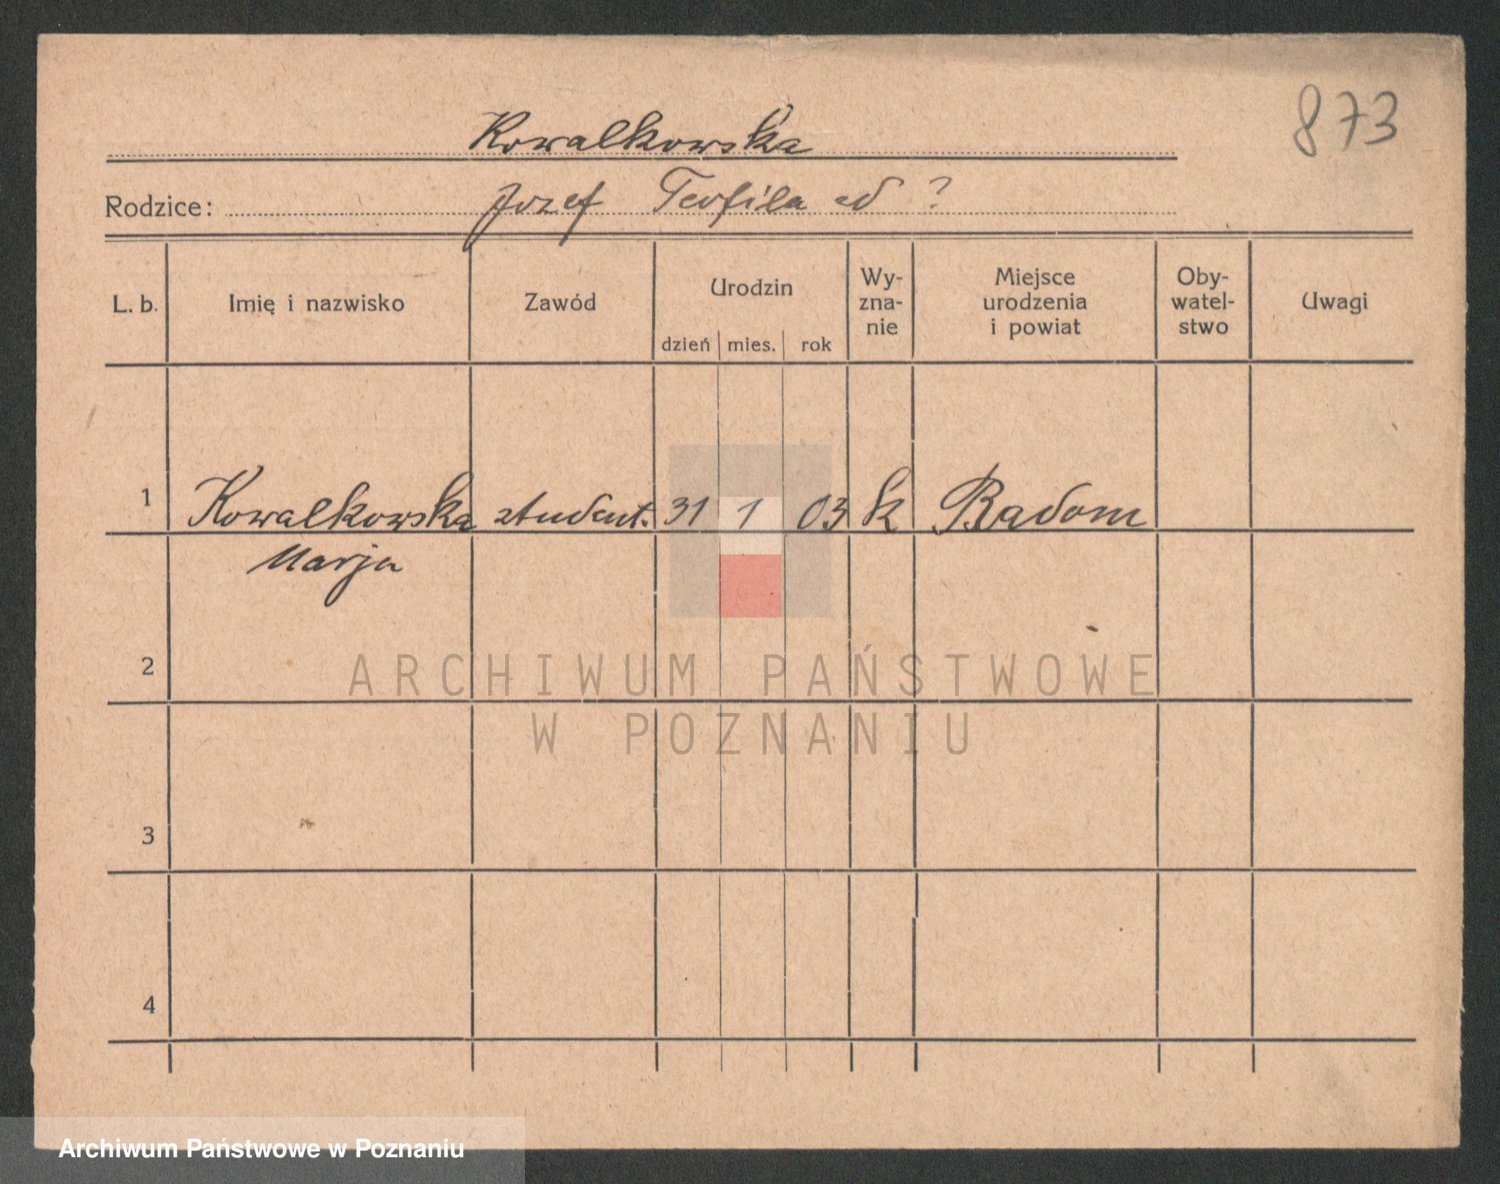 873
Kowalkowska
Rodzice: Jozef Teofila ed ?
L. b. Imię i nazwisko Zawód Urodzin Wy-zna-nie Miejsce urodzenia i powiat Oby-watel-stwo Uwagi
dzień mies. rok
1 Kowalkowska student. 31 1 03 k Radom
Marja
2
ARCHIWUM PAŃSTWOWE
W POZNANIU
3
4
Archiwum Państwowe w Poznaniu